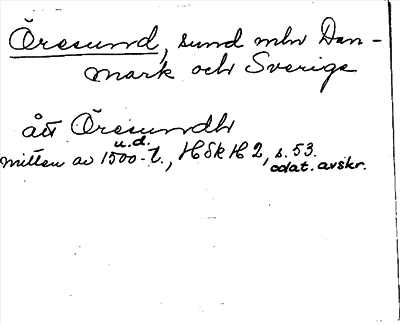 Öresund, sund mlr Dan-
mark och Sverige
åtr Öresundh
u.d.
mitten av 1500-t., HSkH 2, s. 53.
odat. avskr.